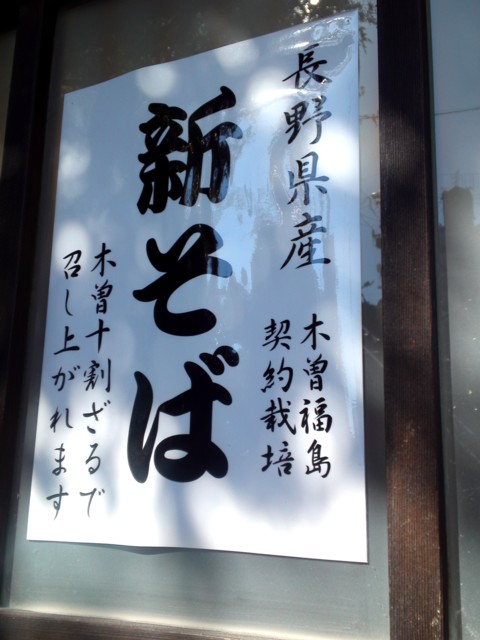 長野県産
木曽福島
契約栽培
新そば
木曽十割ざるで
召し上がれます